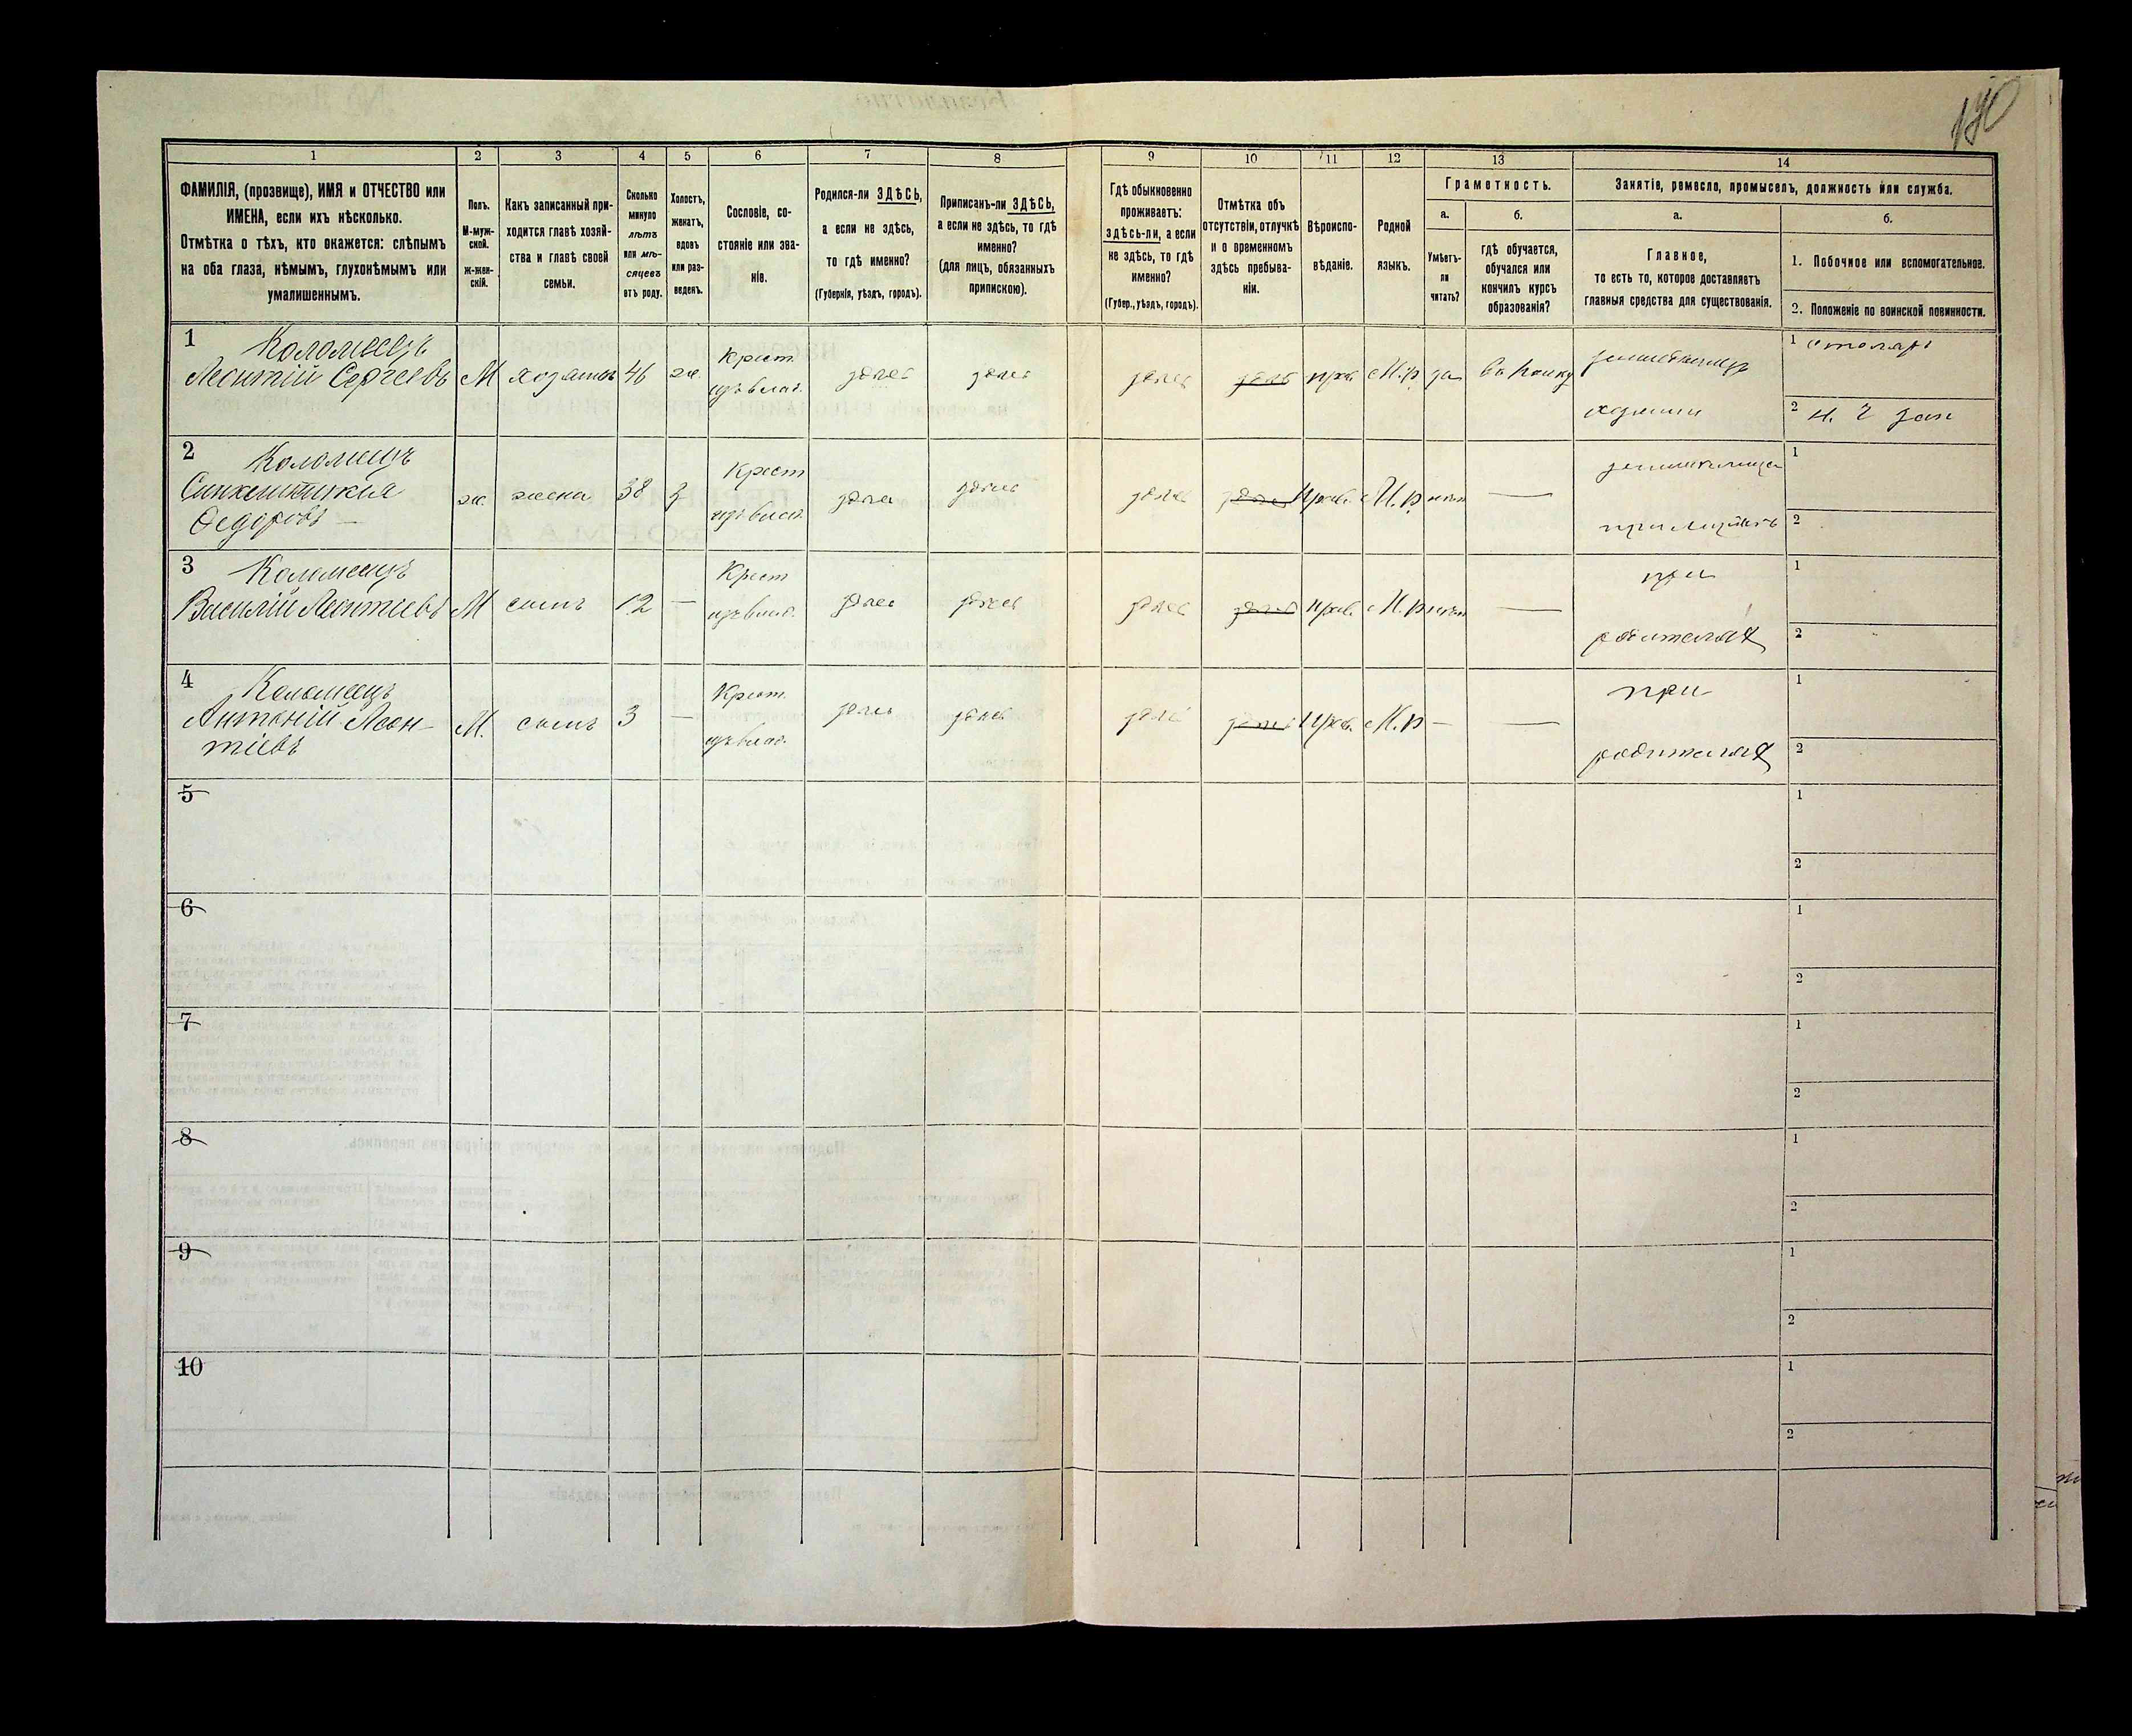 170
1
2
3
4
5
6
7
8
9
10
11
12
13
14
ФАМИЛІЯ, (прозвище), ИМЯ и ОТЧЕСТВО или
ИМЕНА, если ихъ нѣсколько.
Отмѣтка о тѣхъ, кто окажется: слѣпымъ
на оба глаза, нѣмымъ, глухонѣмымъ или
умалишеннымъ.
Полъ.
М-муж-
ской.
ж-жен-
скій.
Какъ записанный при-
ходится главѣ хозяй-
ства и главѣ своей
семьи.
Сколько
минуло
лѣтъ
или мѣ-
сяцевъ
отъ роду.
Холостъ,
женатъ,
вдовъ
или раз-
веденъ.
Сословіе, со-
стояніе или зва-
ніе.
Родился-ли ЗДѢСЬ,
а если не здѣсь,
то гдѣ именно?
(Губернія, уѣздъ, городъ).
Приписанъ-ли ЗДѢСЬ,
а если не здѣсь, то гдѣ
именно?
(для лицъ, обязанныхъ
припискою).
Гдѣ обыкновенно
проживаетъ:
здѣсь-ли, а если
не здѣсь, то гдѣ
именно?
(Губер., уѣздъ, городъ).
Отмѣтка объ
отсутствіи, отлучкѣ
и о временномъ
здѣсь пребыва-
ніи.
Вѣроиспо-
вѣданіе.
Родной
языкъ.
Граметность.
а.
Умѣетъ-
ли
читать?
б.
гдѣ обучается,
обучался или
кончилъ курсъ
образованія?
Занятіе, ремесло, промыселъ, должность или служба.
а.
Главное,
то есть то, которое доставляетъ
главныя средства для существованія.
б.
1. Побочное или вспомогательное.
2. Положеніе по воинской повинности.
1
Коломеецъ
Леонтій Сергеевъ
М
хозяинъ
46
ж.
Крест.
изъ влад.
здесь
здесь
здесь
здесь
прав
М.р
да
земледелецъ
хозяинъ
1 столяръ
2
2
Коломеецъ
Федорова
ж.
жена
38
з
Крест
изъ влад.
здесь
здесь
здесь
здесь
Прав.
М.р
нетъ
—
1
2
3
Коломеецъ
Василій Леонтиевъ
М
сынъ
12
—
Крест
изъ влад.
здесь
здесь
здесь
здесь
Прав.
М.р
нетъ
—
при
родителяхъ
1
2
4
Коломеецъ
Антоній Леон-
тіевъ
М.
сынъ
3
—
Крест.
изъ влад.
здесь
здесь
здесь
здесь
Прав.
М.р
—
—
при
родителяхъ
1
2
5
1
2
6
1
2
7
1
2
8
1
2
9
1
2
10
1
2